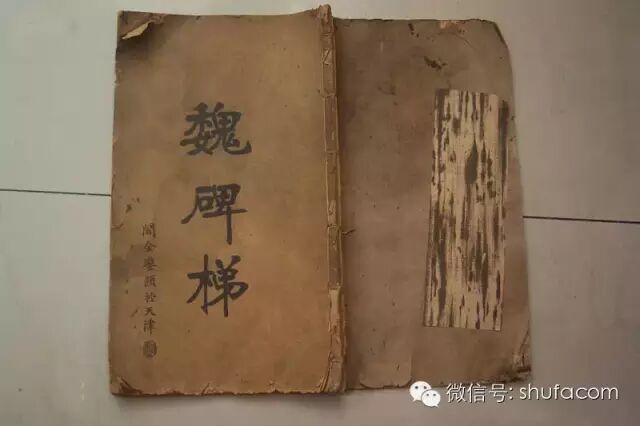 魏碑梯
閻金𡐓題於天津
微信号: shufacom